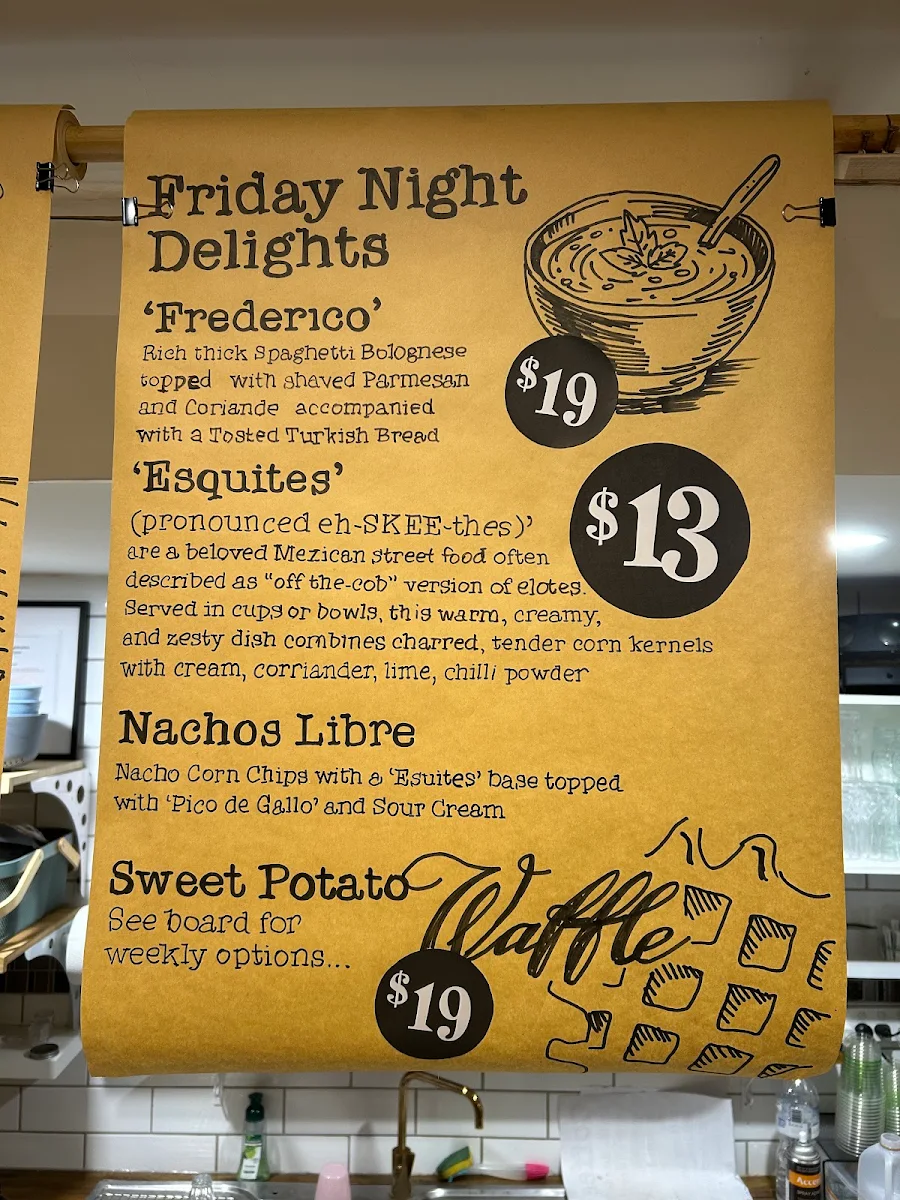 Friday Night
Delights
'Frederico'
Rich thick Spaghetti Bolognese
topped with shaved Parmesan
and Coriande accompanied
with a Tosted Turkish Bread
$19
'Esquites'
(pronounced eh-SKEE-thes)'
are a beloved Mezican street food often
described as "off the-cob" version of elotes.
Served in cups or bowls, this warm, creamy,
and zesty dish combines charred, tender corn kernels
with cream, corriander, lime, chilli powder
$13
Nachos Libre
Nacho Corn Chips with a 'Esuites' base topped
with 'Pico de Gallo' and Sour Cream
Sweet Potato Waffle
See board for
weekly options...
$19